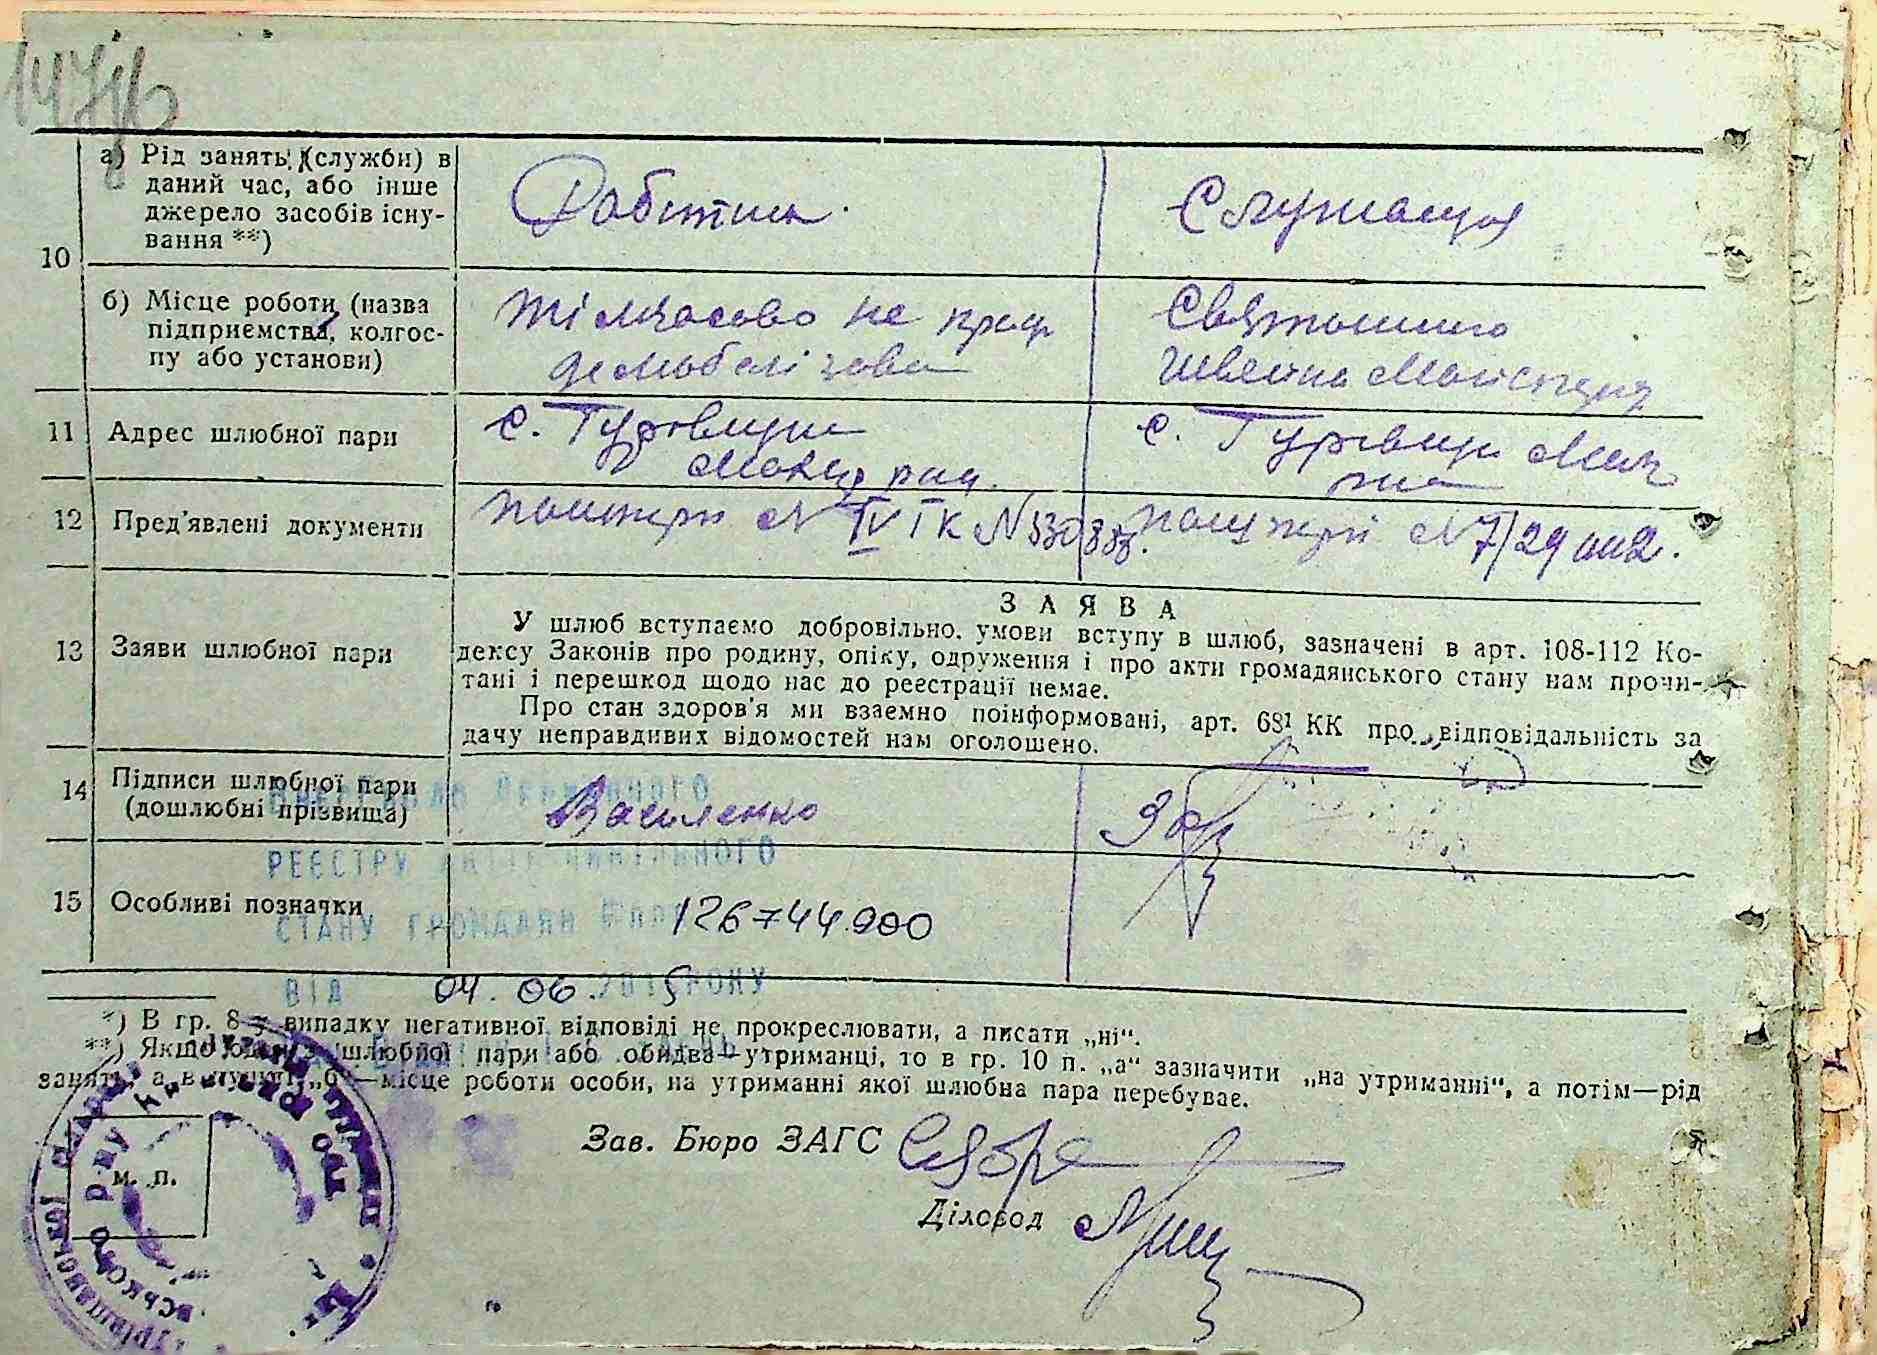 а) Рід занять (служби) в
даний час, або інше
джерело засобів існу-
вання **)
Робітник.
Служащя
10
б) Місце роботи (назва
підприємства, колгос-
пу або установи)
тімчасово не прац
демобелізован
Швейна Майстерня
11
Адрес шлюбної пари
с. Гуровщина
с. Гуровщи
12
Пред'явлені документи
паспорт № IV ГК № 530888.
паспорт № 7/29
13
Заяви шлюбної пари
ЗАЯВА
У шлюб вступаємо добровільно. умови вступу в шлюб, зазначені в арт. 108-112 Ко-
дексу Законів про родину, опіку, одруження і про акти громадянського стану нам прочи-
тані і перешкод щодо нас до реєстрації немає.
Про стан здоров'я ми взаємно поінформовані, арт. 68¹ КК про відповідальність за
дачу неправдивих відомостей нам оголошено.
14
Підписи шлюбної пари
(дошлюбні прізвища)
Василенко
15
Особливі позначки
126744.900
Державного
РЕЄСТРУ АКТІВ ЦИВІЛЬНОГО
СТАНУ ГРОМАДЯН
ВІД 04.06.2015 РОКУ
*) В гр. 8 у випадку негативної відповіді не прокреслювати, а писати „ні“.
**) Якщо один з шлюбної пари або обидва—утриманці, то в гр. 10 п. „а“ зазначити „на утриманні“, а потім—рід
занять, а в пункті „б“—місце роботи особи, на утриманні якої шлюбна пара перебуває.
Зав. Бюро ЗАГС
м. п.
Діловод